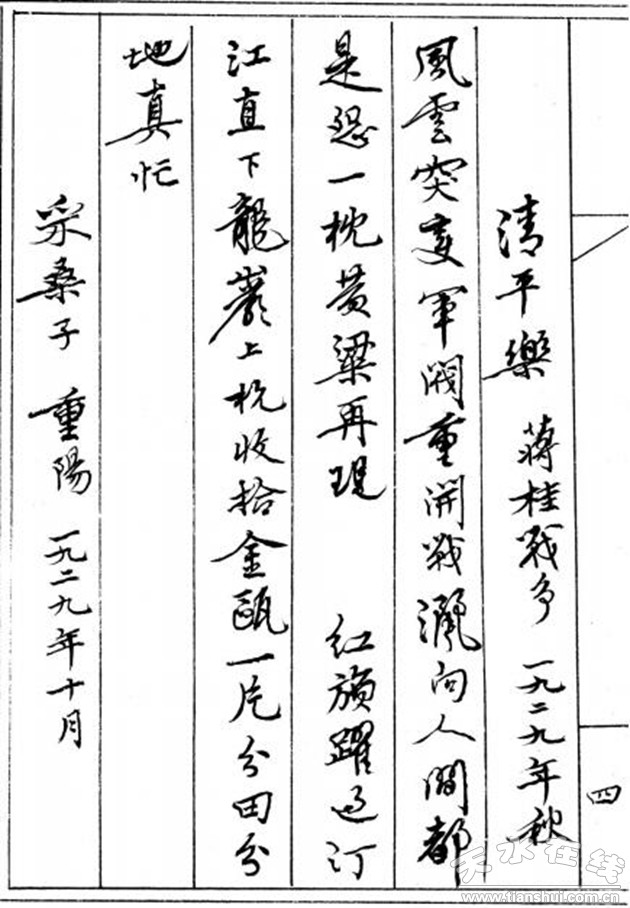 四
清平樂 蔣桂戰爭 一九二九年秋
風雲突變軍閥重開戰灑向人間都
是怨一枕黃粱再現 紅旗躍過汀
江直下龍巖上杭收拾金甌一片分田分
地真忙
采桑子 重陽 一九二九年十月
天水在线
www.tianshui.com.cn